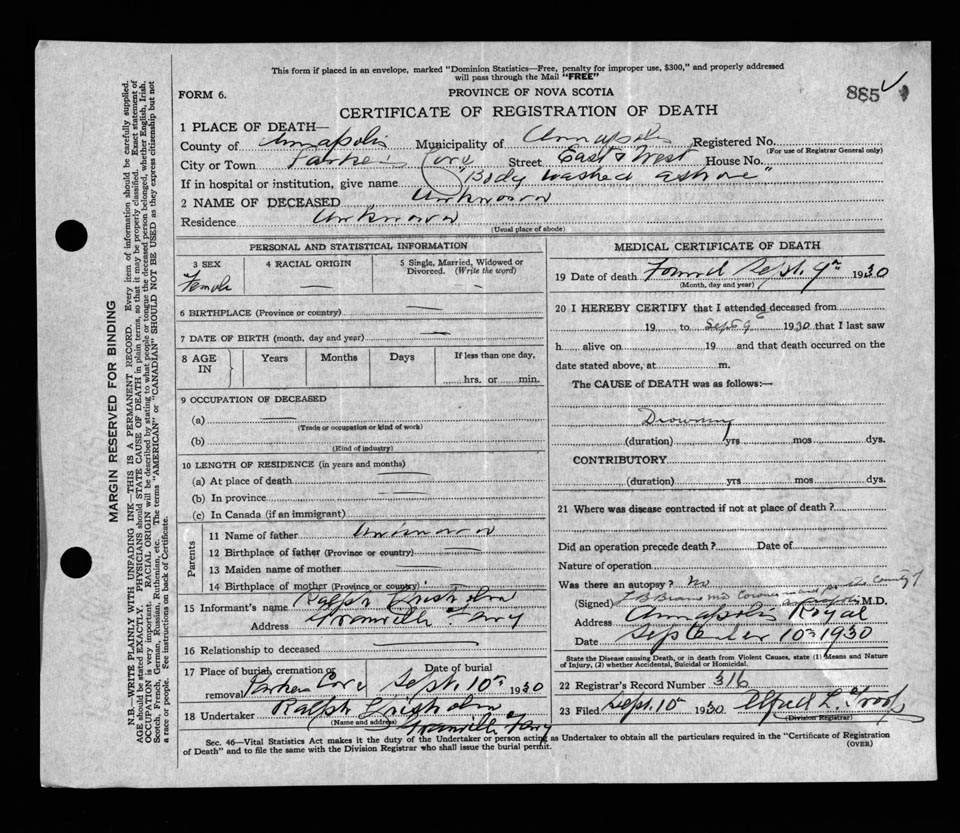 This form if placed in an envelope, marked "Dominion Statistics—Free, penalty for improper use, $300," and properly addressed
will pass through the Mail "FREE"
FORM 6.
PROVINCE OF NOVA SCOTIA
885
CERTIFICATE OF REGISTRATION OF DEATH
1 PLACE OF DEATH—
County of Annapolis Municipality of Annapolis Registered No.
(For use of Registrar General only)
City or Town Parkers Cove Street East & West House No.
If in hospital or institution, give name "Body washed ashore"
2 NAME OF DECEASED Unknown
Residence Unknown
(Usual place of abode)
PERSONAL AND STATISTICAL INFORMATION
3 SEX 4 RACIAL ORIGIN 5 Single, Married, Widowed or Divorced. (Write the word)
Female — —
6 BIRTHPLACE (Province or country) —
7 DATE OF BIRTH (month, day and year) —
8 AGE IN Years Months Days If less than one day,
hrs. or min.
9 OCCUPATION OF DECEASED
(a) —
(Trade or occupation or kind of work)
(b) —
(Kind of industry)
10 LENGTH OF RESIDENCE (in years and months)
(a) At place of death —
(b) In province —
(c) In Canada (if an immigrant)
Parents
11 Name of father Unknown
12 Birthplace of father (Province or country) —
13 Maiden name of mother —
14 Birthplace of mother (Province or country)
15 Informant's name Ralph Chisholm
Address Granville Ferry
16 Relationship to deceased —
17 Place of burial, cremation or removal Parkers Cove Date of burial Sept. 10th 1930
18 Undertaker Ralph Chisholm
(Name and address) Granville Ferry
MEDICAL CERTIFICATE OF DEATH
19 Date of death Found Sept. 9th 1930
(Month, day and year)
20 I HEREBY CERTIFY that I attended deceased from
19 to Sept 9 1930 that I last saw
h alive on 19 and that death occurred on the
date stated above, at m.
The CAUSE of DEATH was as follows:—
Drowning
(duration) yrs mos dys.
CONTRIBUTORY
(duration) yrs mos dys.
21 Where was disease contracted if not at place of death?
Did an operation precede death? Date of
Nature of operation
Was there an autopsy? No
(Signed) Coroner for the County of Annapolis M.D.
Address Annapolis Royal
Date September 10th 1930
State the Disease causing Death, or in death from Violent Causes, state (1) Means and Nature
of Injury, (2) whether Accidental, Suicidal or Homicidal.
22 Registrar's Record Number 316
23 Filed Sept. 10th 1930. Alfred L.
(Division Registrar)
Sec. 46—Vital Statistics Act makes it the duty of the Undertaker or person acting as Undertaker to obtain all the particulars required in the "Certificate of Registration
of Death" and to file the same with the Division Registrar who shall issue the burial permit.
(OVER)
MARGIN RESERVED FOR BINDING
N.B.—WRITE PLAINLY WITH UNFADING INK—THIS IS A PERMANENT RECORD. Every item of information should be carefully supplied.
AGE should be stated EXACTLY. PHYSICIANS should STATE CAUSE OF DEATH in plain terms, so that it may be properly classified. Exact statement of
OCCUPATION is very important. RACIAL ORIGIN will be described by stating to what people or tongue the deceased person belonged, whether English, Irish,
Scotch, French, German, Russian, Ruthenian, etc. The terms "AMERICAN" or "CANADIAN" SHOULD NOT BE USED as they express citizenship but not
a race or people. See instructions on back of Certificate.